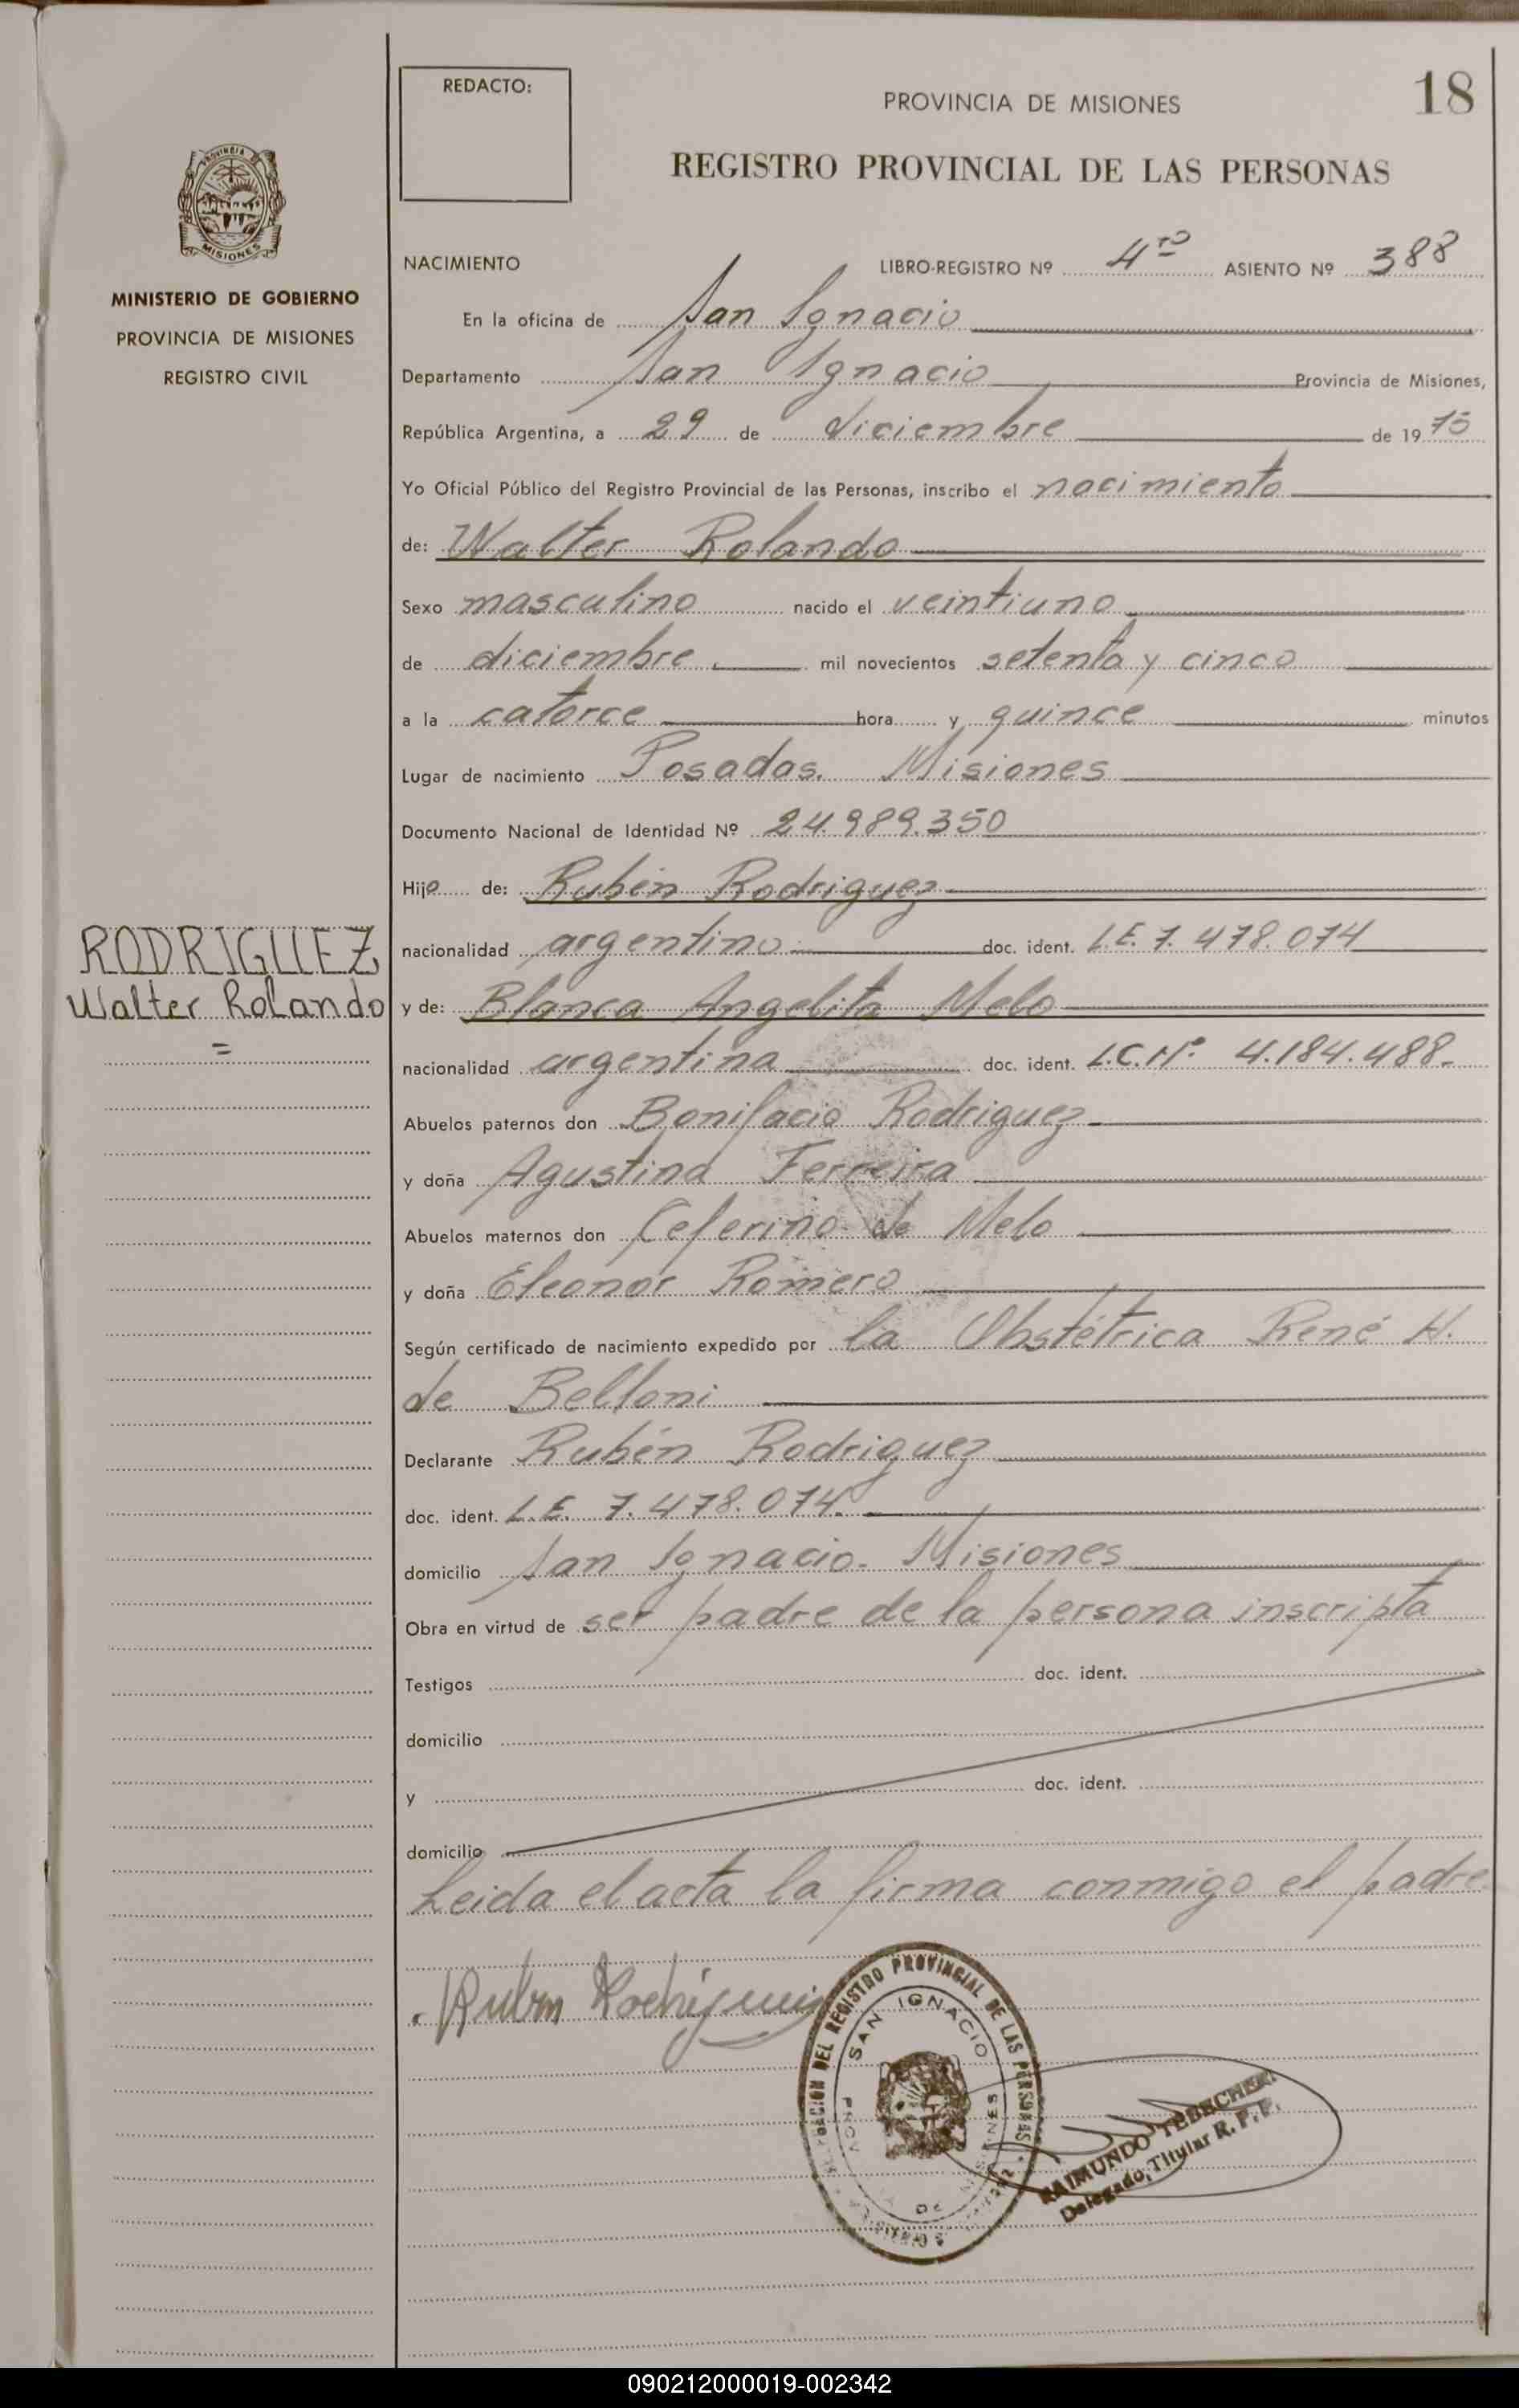 REDACTO:
PROVINCIA DE MISIONES
18
REGISTRO PROVINCIAL DE LAS PERSONAS
PROVINCIA DE
MISIONES
MINISTERIO DE GOBIERNO
PROVINCIA DE MISIONES
REGISTRO CIVIL
NACIMIENTO LIBRO-REGISTRO Nº 4to ASIENTO Nº 388
En la oficina de San Ignacio
Departamento San Ignacio Provincia de Misiones,
República Argentina, a 29 de diciembre de 1975
Yo Oficial Público del Registro Provincial de las Personas, inscribo el nacimiento
de: Walter Rolando
Sexo masculino nacido el veintiuno
de diciembre mil novecientos setenta y cinco
a la catorce hora y quince minutos
Lugar de nacimiento Posadas. Misiones
Documento Nacional de Identidad Nº 24.989.350
Hijo de: Rubén Rodriguez
RODRIGUEZ
Walter Rolando
=
nacionalidad argentino doc. ident. L.E. 7.478.074
y de: Blanca Angelita Melo
nacionalidad argentina doc. ident. L.C.Nº 4.184.488.
Abuelos paternos don Bonifacio Rodriguez
y doña Agustina Ferreira
Abuelos maternos don Ceferino de Melo
y doña Eleonor Romero
Según certificado de nacimiento expedido por la Obstétrica René H.
de Belloni
Declarante Rubén Rodriguez
doc. ident. L.E. 7.478.074.
domicilio San Ignacio. Misiones
Obra en virtud de ser padre de la persona inscripta
Testigos doc. ident.
domicilio
y doc. ident.
domicilio
Leida el acta la firma conmigo el padre
Ruben Rodriguez
DEL REGISTRO PROVINCIAL DE LAS PERSONAS
SAN IGNACIO
PROV. DE MISIONES
RAIMUNDO TEBECHERI
Delegado Titular R. P. P.
090212000019-002342